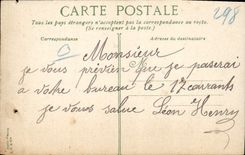 CARTE POSTALE
Tous les pays étrangers n'acceptent pas la correspondance au recto.
(Se renseigner à la poste)
Correspondance Adresse du destinataire
298
Monsieur
je vous prévien que je paserai
a votre bureau le 17 courants
je vous salue Léon Henry